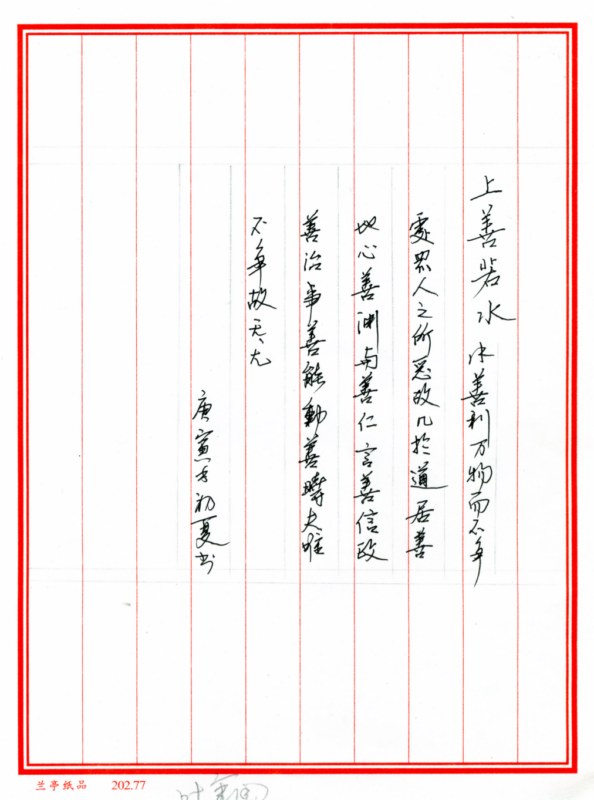 上善若水水善利万物而不争
處眾人之所恶故几於道居善
地心善渊与善仁言善信政
善治事善能動善時夫唯
不争故无尤
庚寅年初夏书
兰亭纸品 202.77